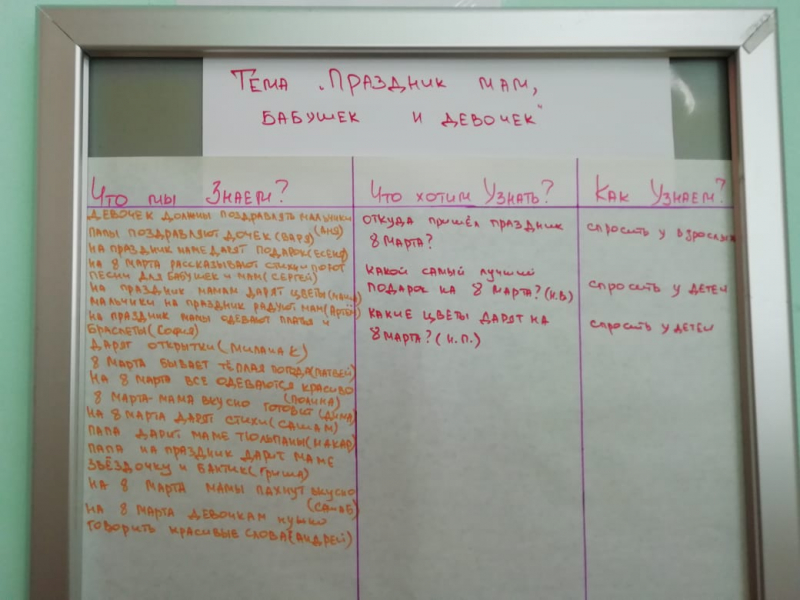 Тема „Праздник мам,
бабушек и девочек"
Что мы знаем?
девочек должны поздравлять мальчики
(Аня)
папы поздравляют дочек (Варя)
на праздник маме дарят подарок (Есения)
на 8 марта рассказывают стихи поют
песни для бабушек и мам (Сергей)
на праздник мамам дарят цветы
мальчики на праздник радуют мам (Артём)
на праздник мамы одевают платья и
браслеты (София)
дарят открытки (Милана К)
8 марта бывает тёплая погода (Матвей)
на 8 марта все одеваются красиво
(Полина)
8 марта-мама вкусно готовит (Дима)
на 8 марта дарят стихи (Саша М)
папа дарит маме тюльпаны (Макар)
папа на праздник дарит маме
звёздочку и бантик (Гриша)
на 8 марта мамы пахнут вкусно
(Саша Б)
на 8 марта девочкам нужно
говорить красивые слова (Андрей)
Что хотим узнать?
откуда пришёл праздник
8 марта?
какой самый лучший
подарок на 8 марта? (И.В)
какие цветы дарят на
8 марта? (И.П.)
Как узнаем?
спросить у взрослых
спросить у детей
спросить у детей